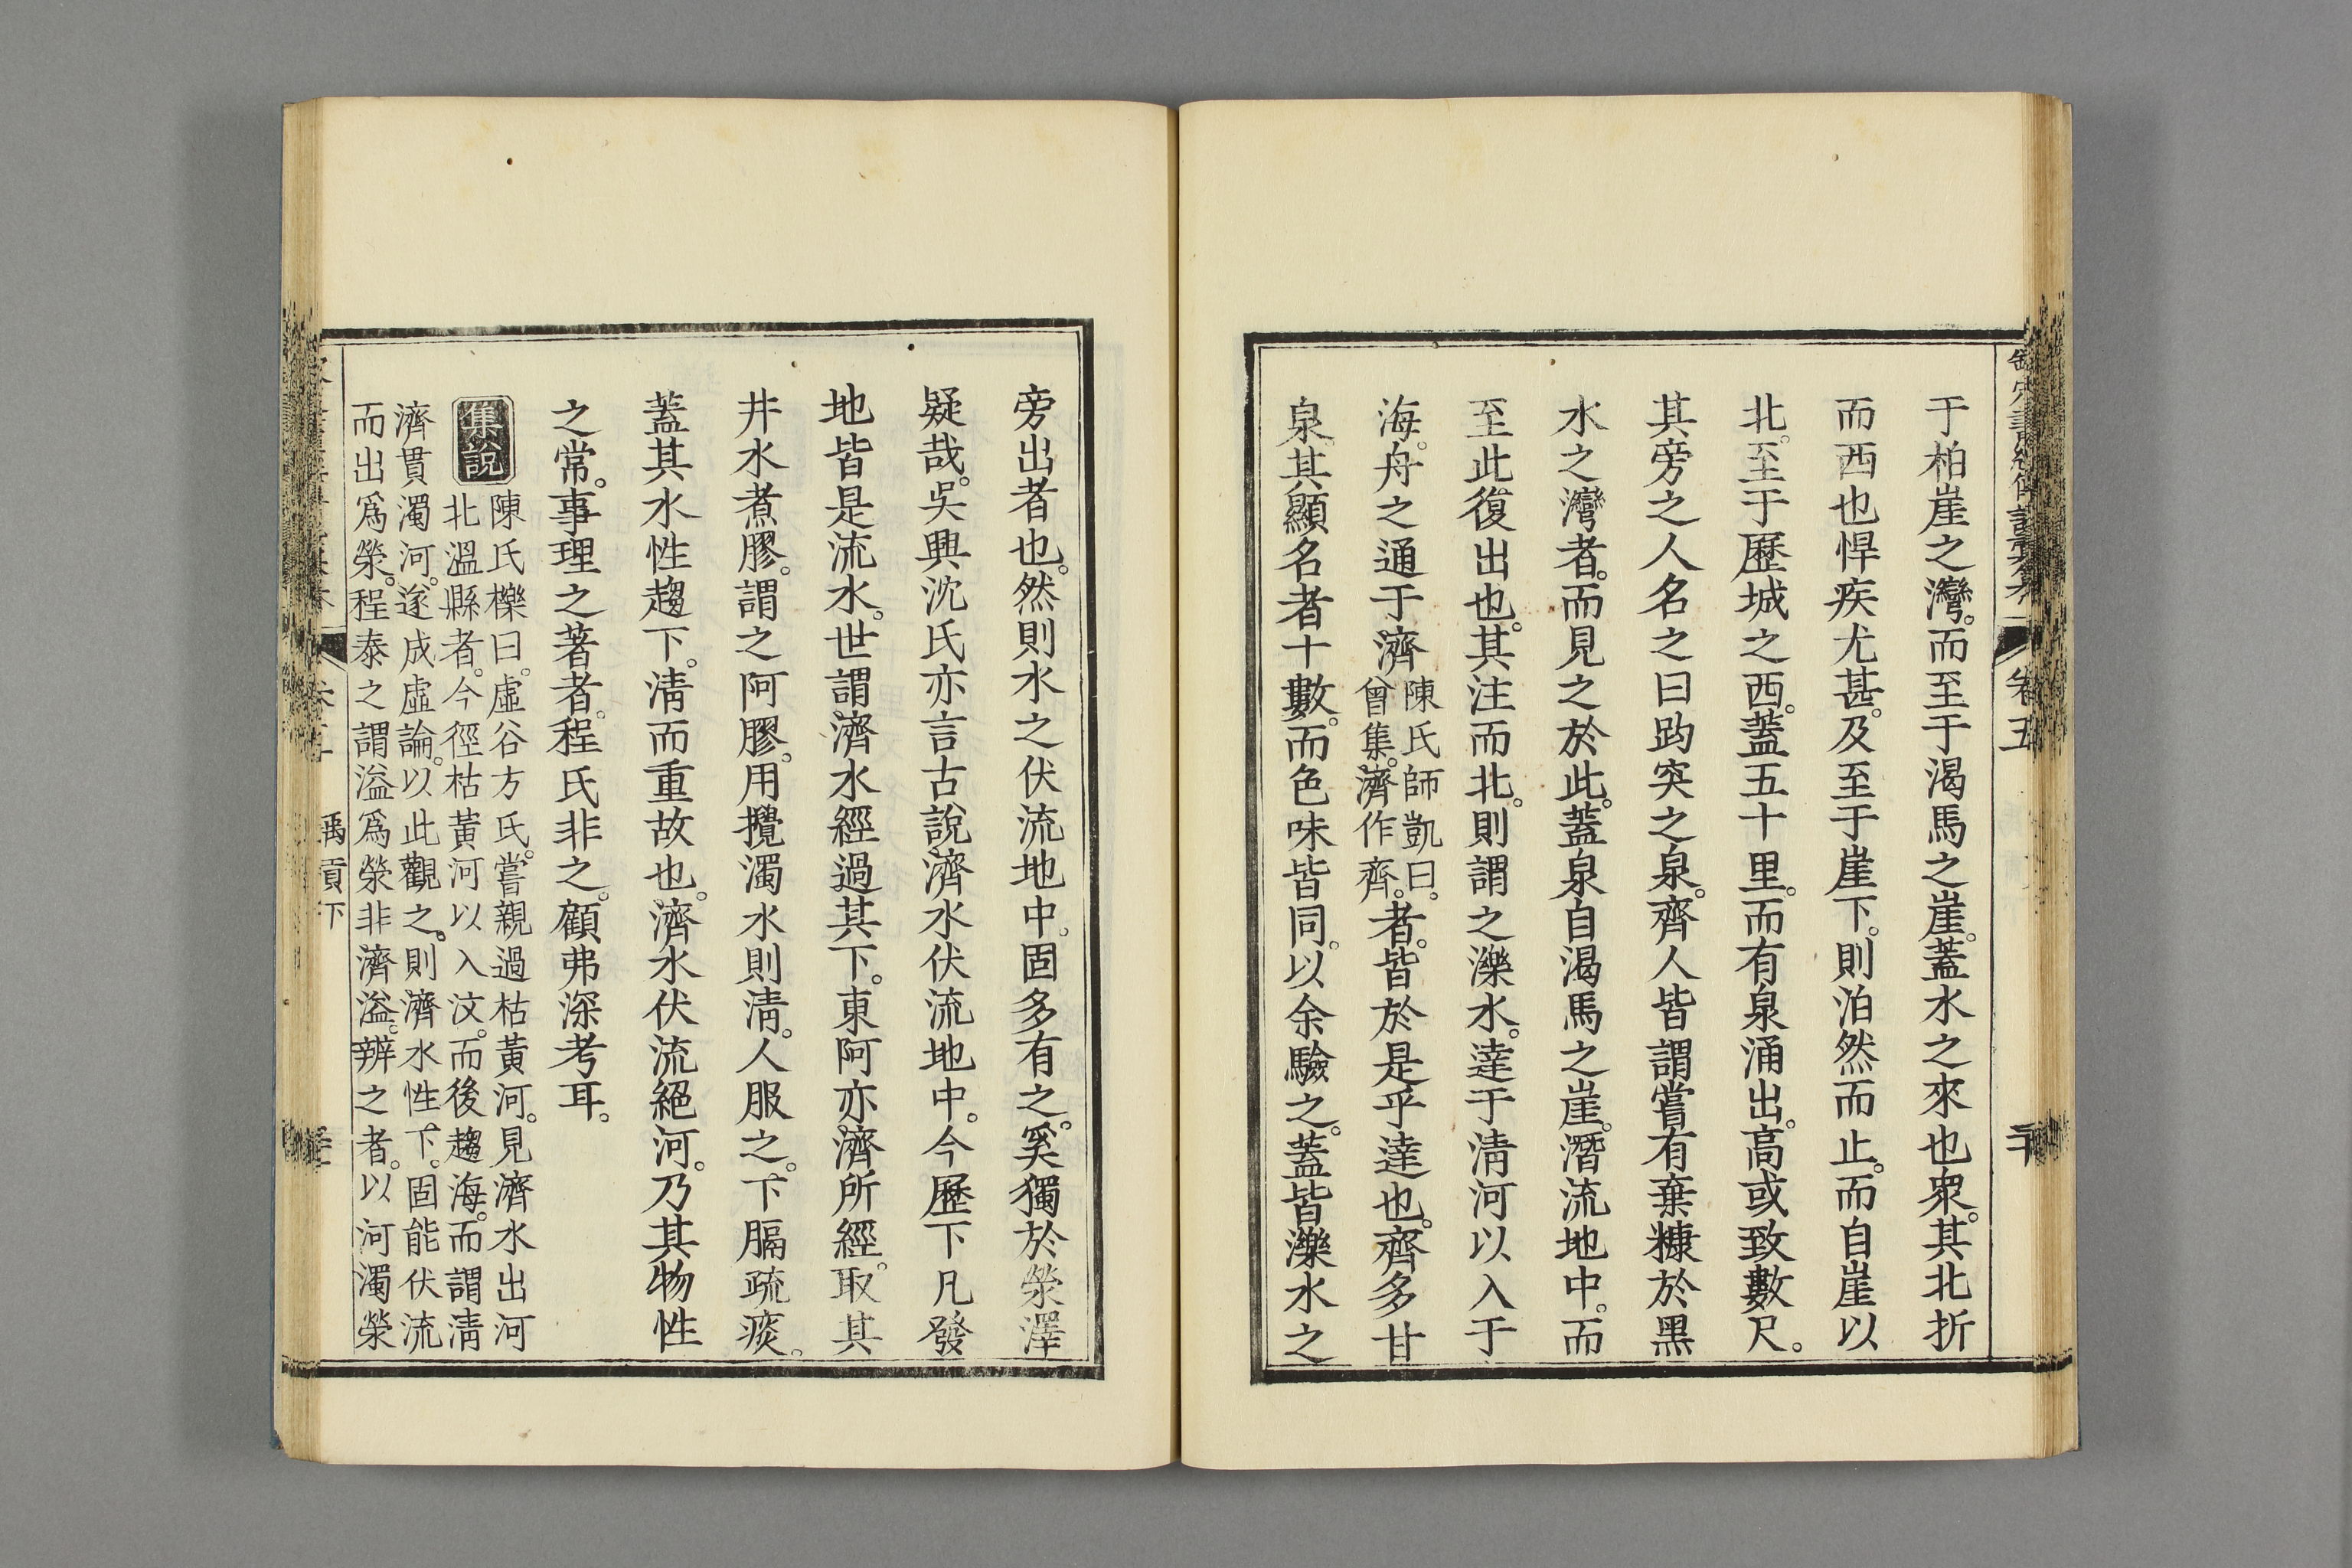 于柏崖之灣。而至于渴馬之崖。蓋水之來也衆。其北折
而西也悍疾尤甚。及至于崖下。則泊然而止。而自崖以
北。至于歷城之西。蓋五十里。而有泉涌出。高或致數尺。
其旁之人名之曰趵突之泉。齊人皆謂嘗有棄糠於黑
水之灣者。而見之於此。蓋泉自渴馬之崖。潛流地中。而
至此復出也。其注而北。則謂之濼水。達于淸河以入于
海。舟之通于濟
陳氏師凱曰。
曾集。濟作齊。
者。皆於是乎達也。齊多甘
泉。其顯名者十數。而色味皆同。以余驗之。蓋皆濼水之
旁出者也。然則水之伏流地中。固多有之。奚獨於滎澤
疑哉。吳興沈氏亦言古說濟水伏流地中。今歷下凡發
地皆是流水。世謂濟水經過其下。東阿亦濟所經。取其
井水煮膠。謂之阿膠。用攪濁水則淸。人服之。下膈疏痰。
蓋其水性趨下。淸而重故也。濟水伏流絕河。乃其物性
之常。事理之著者。程氏非之。顧弗深考耳。
集說
陳氏櫟曰。虛谷方氏。嘗親過枯黃河。見濟水出河
北溫縣者。今徑枯黃河以入汶。而後趨海。而謂淸
濟貫濁河。遂成虛論。以此觀之。則濟水性下。固能伏流
而出爲滎。程泰之謂溢爲滎非濟溢。辨之者。以河濁滎
卷五
禹貢下